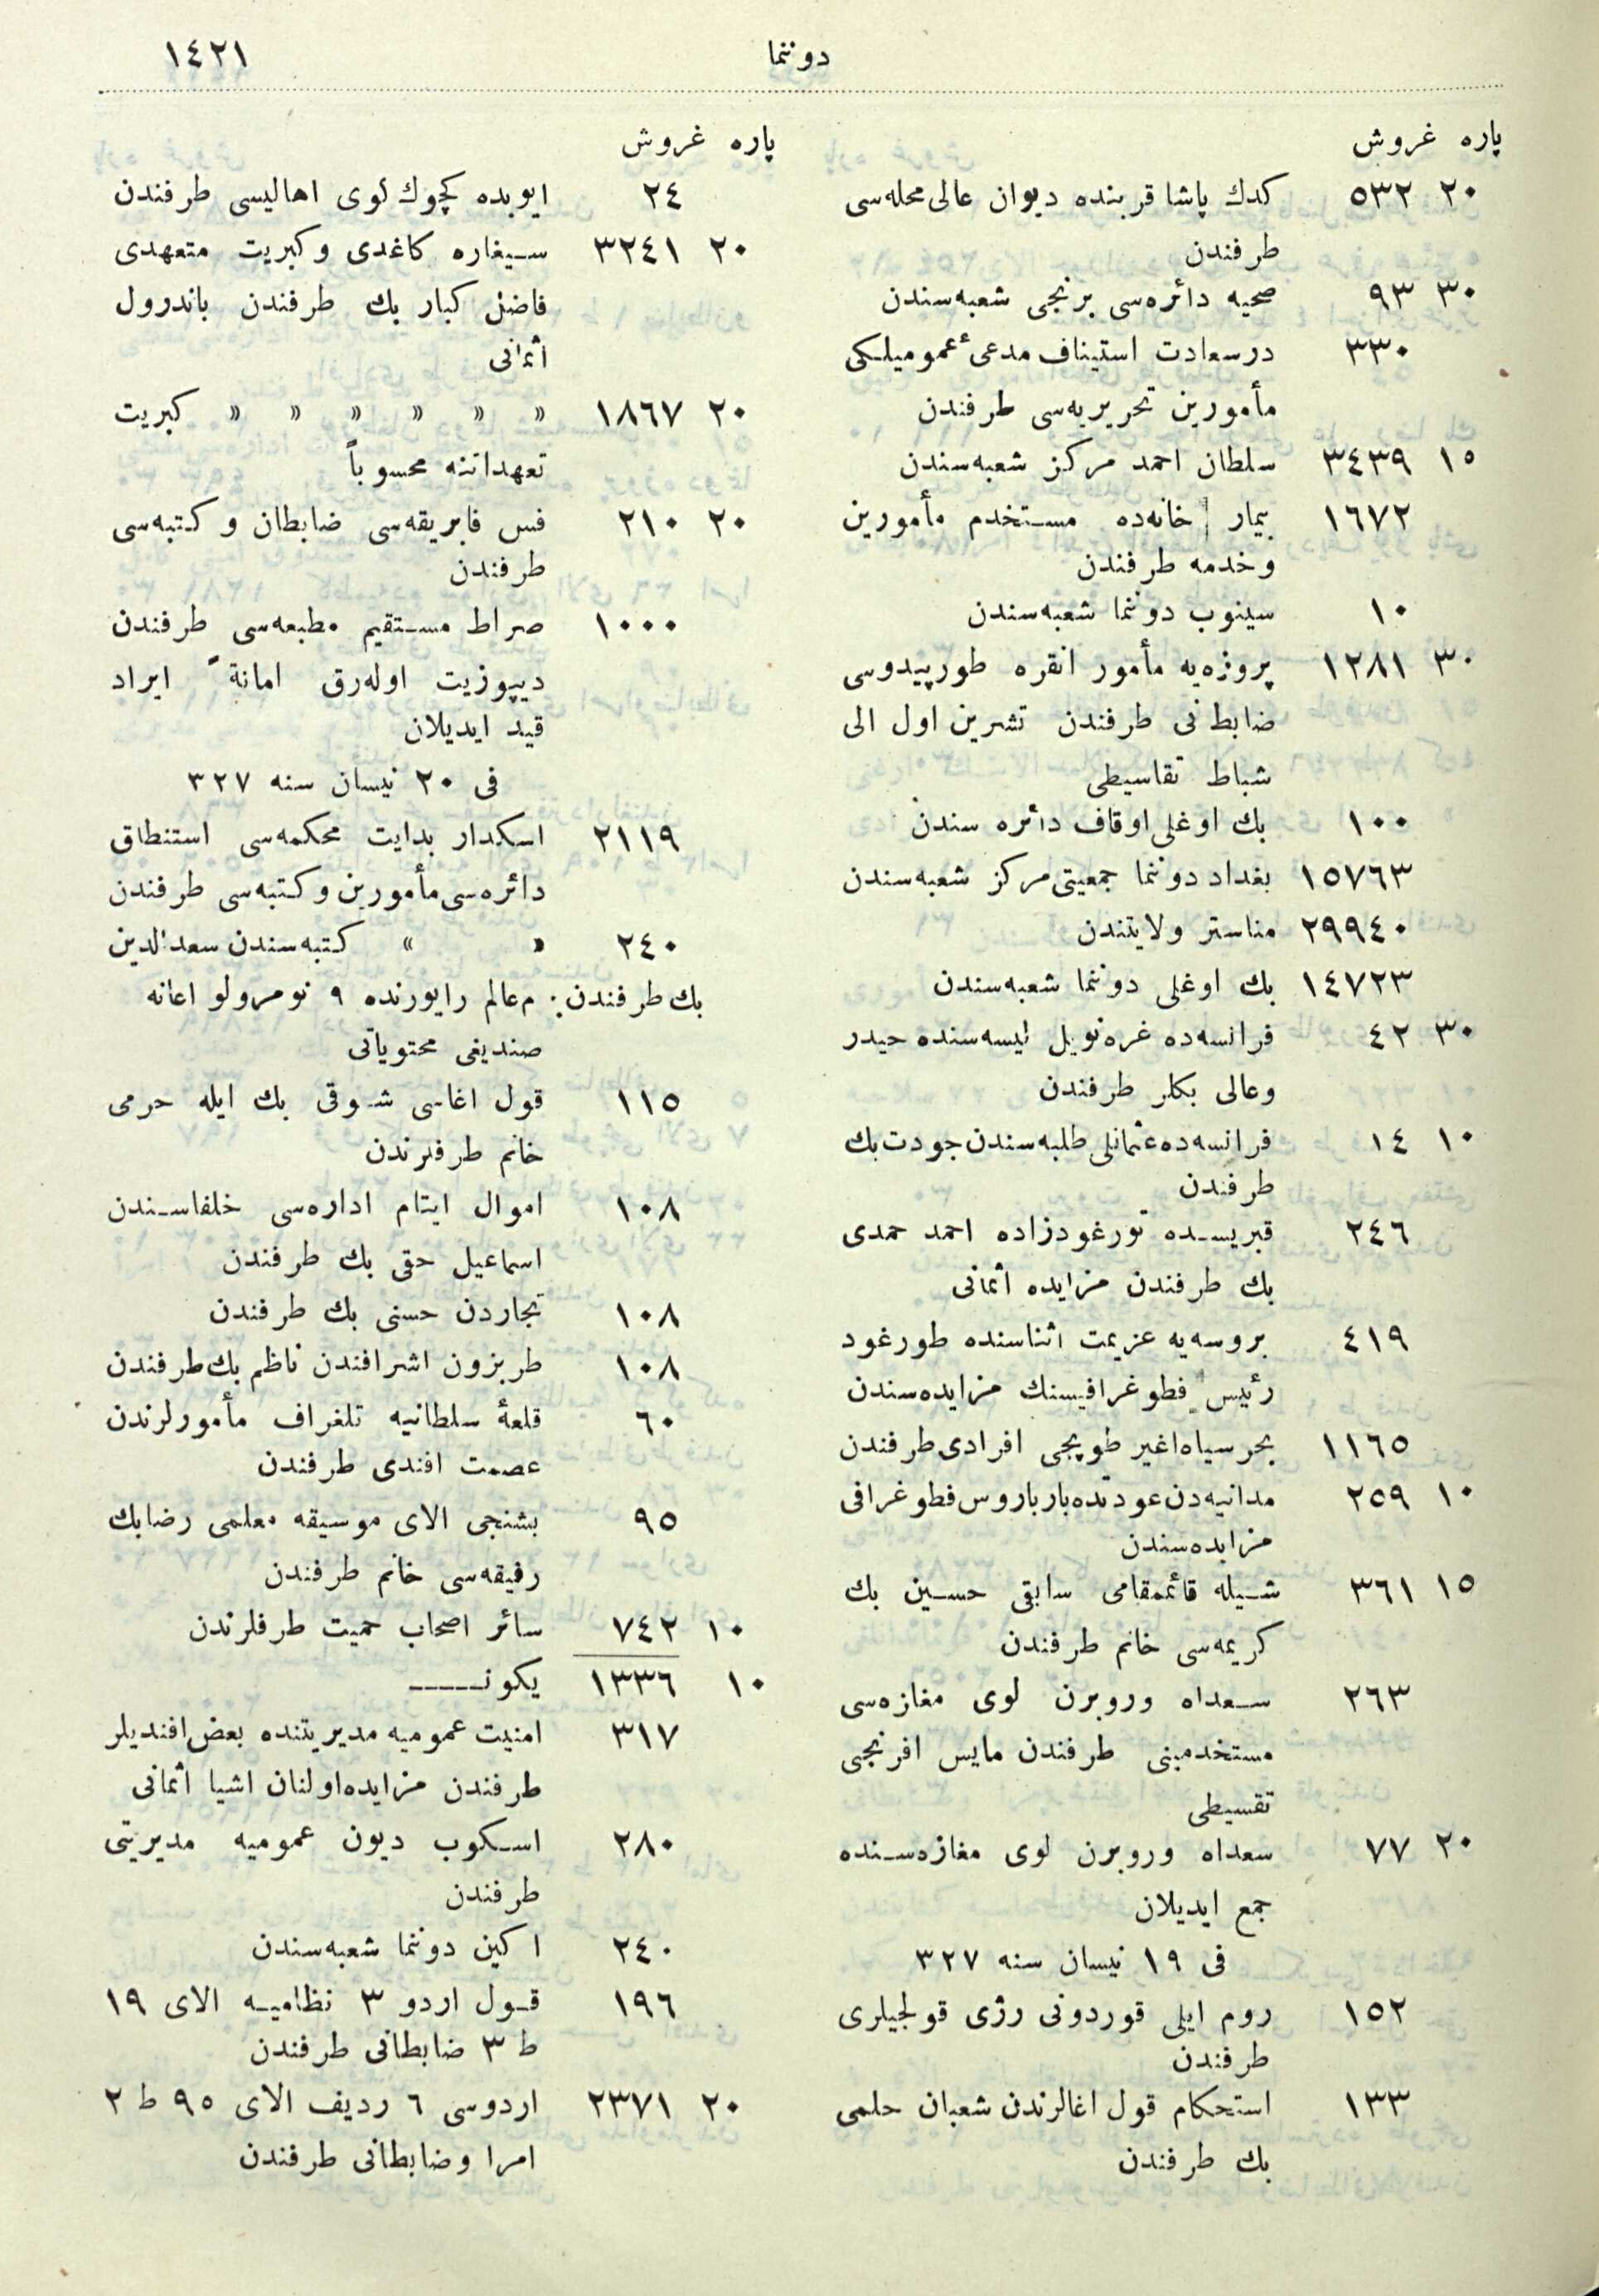 دوننما ١٤٢١
پاره غروش
٢٠ ٥٣٢ كدك پاشا قربنده ديوان عالى محله‌سى
طرفندن
٣٠ ٩٣ صحيه دائره‌سى برنجى شعبه‌سندن
٣٣٠ درسعادت استيناف مدعئ عموميلكى
مأمورين تحريريه‌سى طرفندن
١٥ ٣٤٣٩ سلطان احمد مركز شعبه‌سندن
١٦٧٢ بيمار خانه‌ده مستخدم مأمورين
وخدمه طرفندن
١٠ سينوب دوننما شعبه‌سندن
٣٠ ١٢٨١ پروژه‌يه مأمور انقره طورپيدوسى
ضابطنى طرفندن تشرين اول الى
شباط تقاسيطى
١٠٠ بك اوغلى اوقاف دائره سندن
١٥٧٦٣ بغداد دوننما جمعيتى مركز شعبه‌سندن
٢٩٩٤٠ مناستر ولايتندن
١٤٧٢٣ بك اوغلى دوننما شعبه‌سندن
٣٠ ٤٢ فرانسه‌ده غره‌نوبل ليسه‌سنده حيدر
وعالى بكلر طرفندن
١٠ ١٤ فرانسه‌ده عثمانلى طلبه‌سندن جودت بك
طرفندن
٢٤٦ قبريسده تورغودزاده احمد حمدى
بك طرفندن مزايده اثمانى
٤١٩ بروسه‌يه عزيمت اثناسنده طورغود
رئيس فطوغرافيسنك مزايده‌سندن
١١٦٥ بحر سياه اغير طوپجى افرادى طرفندن
١٠ ٢٥٩ مدانيه‌دن عودتده بارباروس فطوغرافى
مزايده‌سندن
١٥ ٣٦١ شيله قائممقامى سابقى حسين بك
كريمه‌سى خانم طرفندن
٢٦٣ سعداه وروبرن لوى مغازه‌سى
مستخدمينى طرفندن مايس افرنجى
تقسيطى
٢٠ ٧٧ سعداه وروبرن لوى مغازه‌سنده
جمع ايديلان
فى ١٩ نيسان سنه ٣٢٧
١٥٢ روم ايلى قوردونى رژى قولجيلرى
طرفندن
١٣٣ استحكام قول اغالرندن شعبان حلمى
بك طرفندن
پاره غروش
٢٤ ايوبده كچوك كوى اهاليسى طرفندن
٢٠ ٣٢٤١ سيغاره كاغدى وكبريت متعهدى
فاضل كبار بك طرفندن باندرول
اثمانى
٢٠ ١٨٦٧ » » » » » » كبريت
تعهداتنه محسوباً
٢٠ ٢١٠ فس فابريقه‌سى ضابطان وكتبه‌سى
طرفندن
١٠٠٠ صراط مستقيم مطبعه‌سى طرفندن
ديپوزيت اوله‌رق امانةً ايراد
قيد ايديلان
فى ٢٠ نيسان سنه ٣٢٧
٢١١٩ اسكدار بدايت محكمه‌سى استنطاق
دائره‌سى مأمورين وكتبه‌سى طرفندن
٢٤٠ » » كتبه‌سندن سعدالدين
بك طرفندن: م عالم راپورنده ٩ نومرولو اعانه
صنديغى محتوياتى
١١٥ قول اغاسى شوقى بك ايله حرمى
خانم طرفلرندن
١٠٨ اموال ايتام اداره‌سى خلفاسندن
اسماعيل حقى بك طرفندن
١٠٨ تجاردن حسنى بك طرفندن
١٠٨ طربزون اشرافندن ناظم بك طرفندن
٦٠ قلعۀ سلطانيه تلغراف مأمورلرندن
عصمت افندى طرفندن
٩٥ بشنجى الاى موسيقه معلمى رضا بك
رفيقه‌سى خانم طرفندن
١٠ ٧٤٢ سائر اصحاب حميت طرفلرندن
١٠ ١٣٣٦ يكون
٣١٧ امنيت عموميه مديريتنده بعض افنديلر
طرفندن مزايده اولنان اشيا اثمانى
٢٨٠ اسكوب ديون عموميه مديريتى
طرفندن
٢٤٠ اكين دوننما شعبه‌سندن
١٩٦ قول اردو ٣ نظاميه الاى ١٩
ط ٣ ضابطانى طرفندن
٢٠ ٢٣٧١ اردوسى ٦ رديف الاى ٩٥ ط ٢
امرا وضابطانى طرفندن